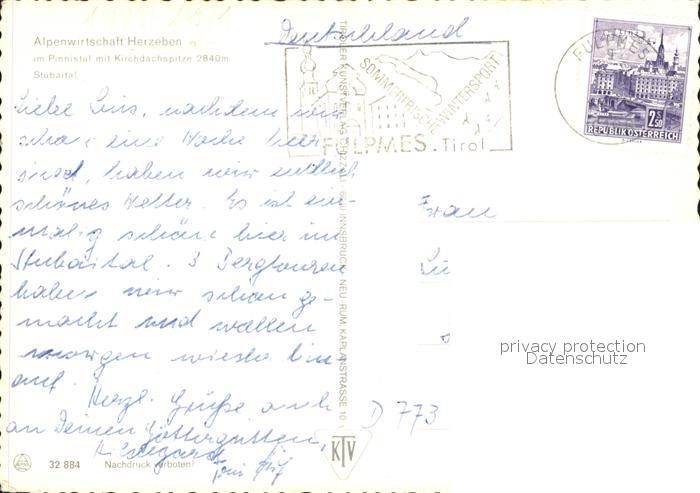 Deutschland
Alpenwirtschaft Herzeben
im Pinnistal mit Kirchdachspitze 2840m
Stubaital
SOMMERFRISCHE WINTERSPORT
FULPMES . Tirol
FULPMES
2 S 50
REPUBLIK ÖSTERREICH
Liebe Luis, nachdem wir
schon eine Woche hier
sind, haben wir endlich
schönes Wetter. Es ist ein-
malig schön hier im
Stubaital. 3 Bergtouren
haben wir schon ge-
macht und wollen
morgen wieder hin-
auf.
Herzl. Grüße auch
an Deinen Göttergatten,
Hildegard
Frau
Lu
D 773
TIROLER KUNSTVERLAG CHIZZALI 6020 INNSBRUCK - NEU-RUM, KAPLANSTRASSE 10
KTV
32 884 Nachdruck verboten!
privacy protection
Datenschutz